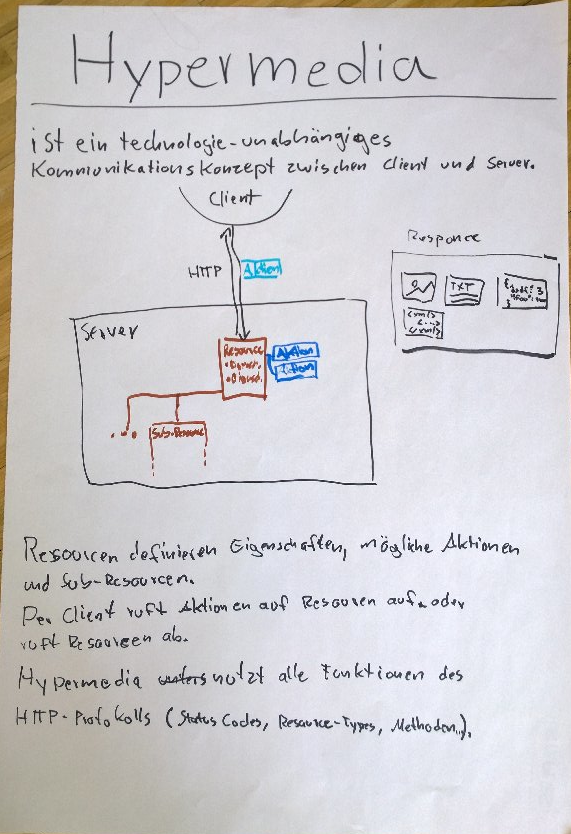 Hypermedia
ist ein technologie-unabhängiges
Kommunikationskonzept zwischen Client und Server.
Client
HTTP
Aktion
Responce
TXT
<xml>
<...>
</xml>
Server
Resource
Aktion
Aktion
...
Sub-Resource
Resourcen definieren Eigenschaften, mögliche Aktionen
und Sub-Resourcen.
Der Client ruft Aktionen auf Resourcen auf oder
ruft Resourcen ab.
Hypermedia nutzt alle Funktionen des
HTTP-Protokolls (Status Codes, Resource-Types, Methoden...).